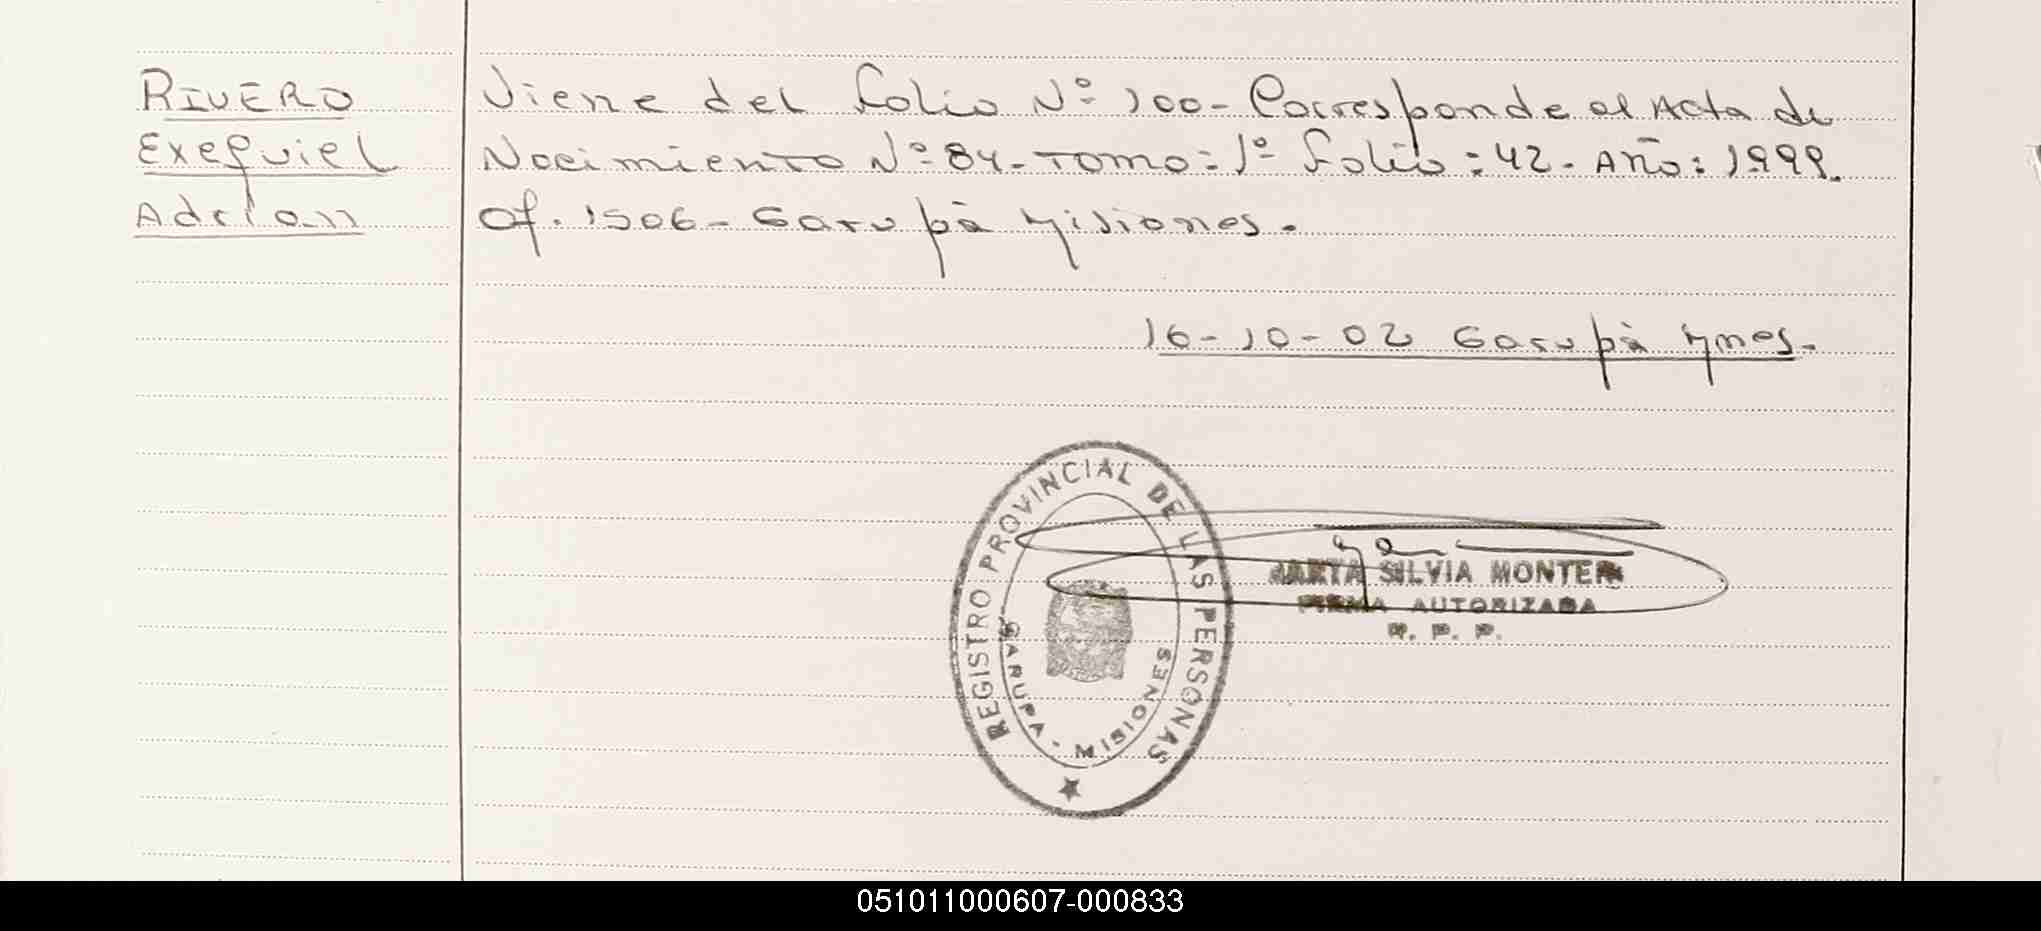 RIVERO
Exequiel
Adrian
Viene del folio Nº 100- Corresponde al Acta de
Nacimiento Nº 84- Tomo: 1º folio: 42- Año: 1998.
Of. 1506- Garupà Misiones.
16-10-02 Garupà Mnes.
REGISTRO PROVINCIAL DE LAS PERSONAS
GARUPA - MISIONES
MARTA SILVIA MONTER
FIRMA AUTORIZADA
R. P. P.
051011000607-000833